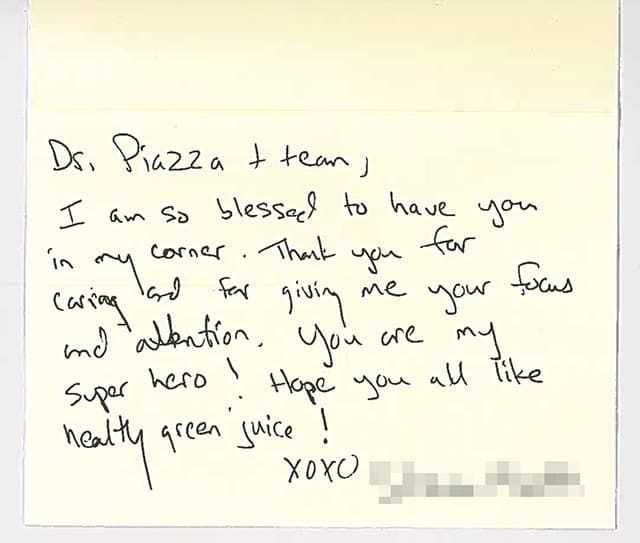 Dr. Piazza + team,
I am so blessed to have you
in my corner. Thank you for
caring and for giving me your focus
and attention. You are my
super hero! Hope you all like
healthy green juice!
XOXO